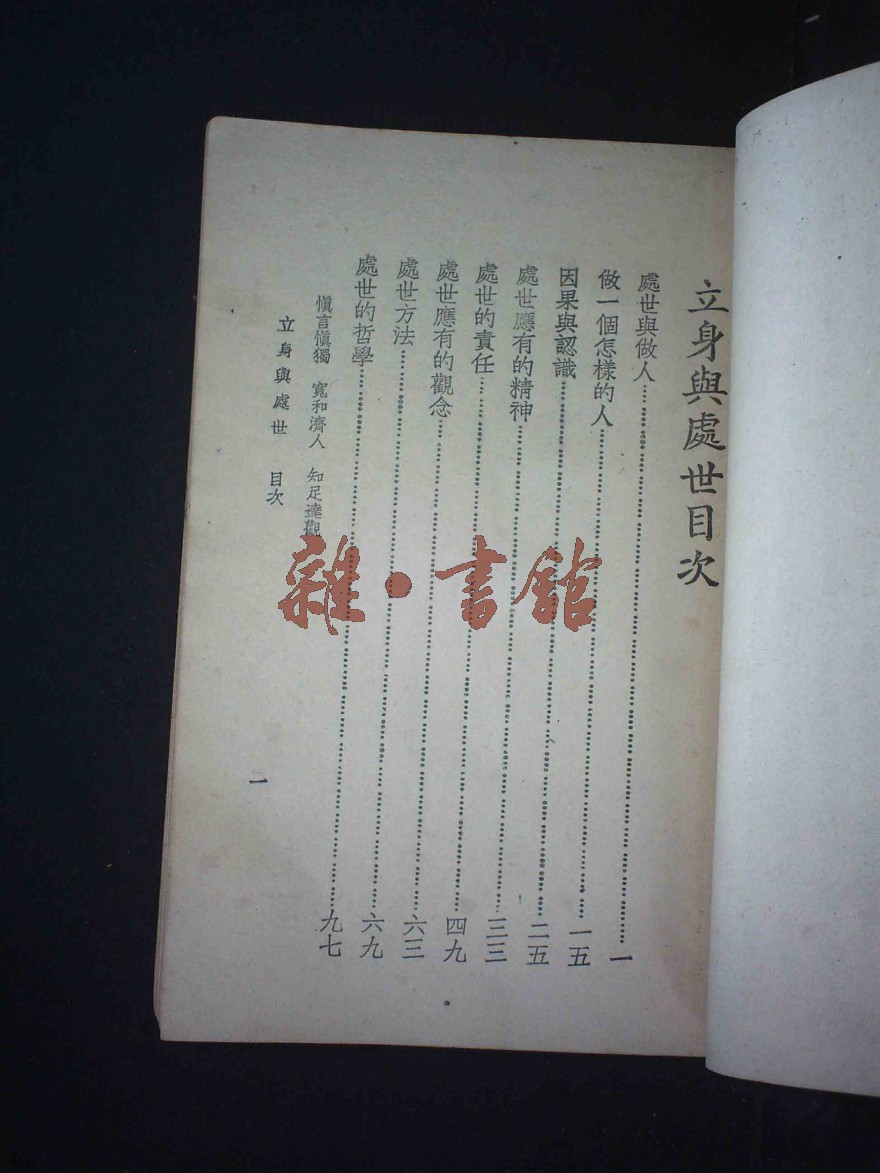 立身與處世目次
處世與做人……一
做一個怎樣的人……一五
因果與認識……二五
處世應有的精神……三三
處世的責任……四九
處世應有的觀念……六三
處世方法……六九
處世的哲學……九七
慎言慎獨 寬和濟人 知足達觀
立身與處世 目次
一
雜·書館